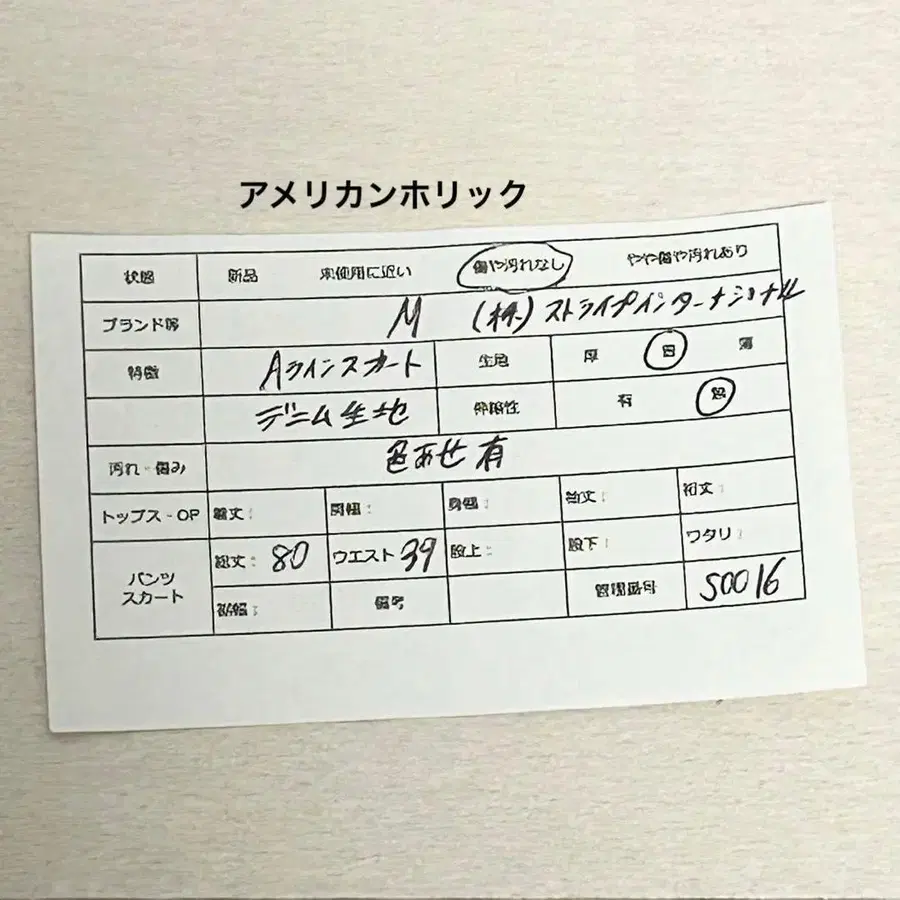 アメリカンホリック
状態 新品 未使用に近い 傷や汚れなし やや傷や汚れあり
ブランド等 M (株)ストライプインターナショナル
特徴 Aラインスカート 生地 厚 薄
デニム生地 伸縮性 有
汚れ・傷み 色あせ有
トップス・OP 着丈: 肩幅: 身幅: 袖丈: 裄丈:
パンツ スカート
総丈:80 ウエスト39 股上: 股下: ワタリ:
裾幅: 備考 管理番号 S0016